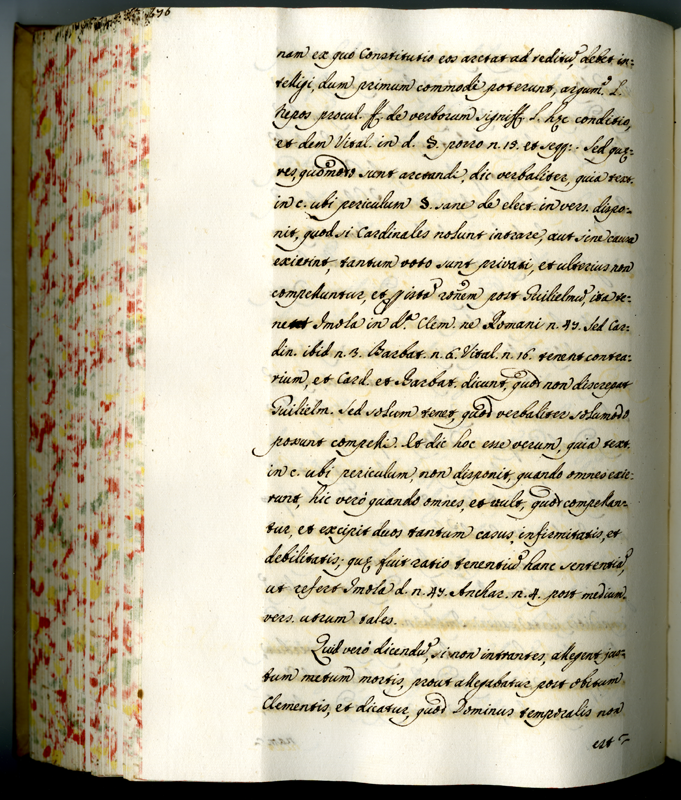 nam ex quo Constitutio eos arctat ad reditũ, debet in=
telligi, dum primum commodè poterunt, argum.º L.
Nepos procul. ff. de verborum signiff. L. hęc conditio,
et dem Vital. in d. §. porro n. 15. et seqq:. Sed quę=
res, quomodo sunt arctandi, dic verbaliter, quia text.
in c. ubi periculum §. sane de elect. in vers. dispo=
nit, quod si Cardinales nolunt intrare, aut sine causa
exierint, tantum voto sunt privati, et ulterius non
compelluntur, et istã rõnem post Guilielmũ, ita te=
net Imola in d.ª Clem. ne Romani n. 47. Sed Car=
din. ibid n. 13. Barbat. n. 6. Vital. n. 16. tenent contra=
rium, et Card. et Barbat. dicunt, quod non discrepat
Guilielm. Sed solum tenet, quòd verbaliter solumodo
possunt compelli. Et dic hoc esse verum, quia text.
in c. ubi periculum, non disponit, quando omnes exie=
runt, hic verò quando omnes, et vult, quod compellan=
tur, et excipit duos tantum casus infirmitatis, et
debilitatis; quę fuit ratio tenentiũ hanc sententiã,
ut refert Imola d. n. 47. Anchar. n. 4. post medium
vers. utrum tales.
Quid verò dicendũ, si non intrantes, allegent jus=
tum metum mortis, prout allegabatur post obitum
Clementis, et dicatur, quod Dominus temporalis non
est